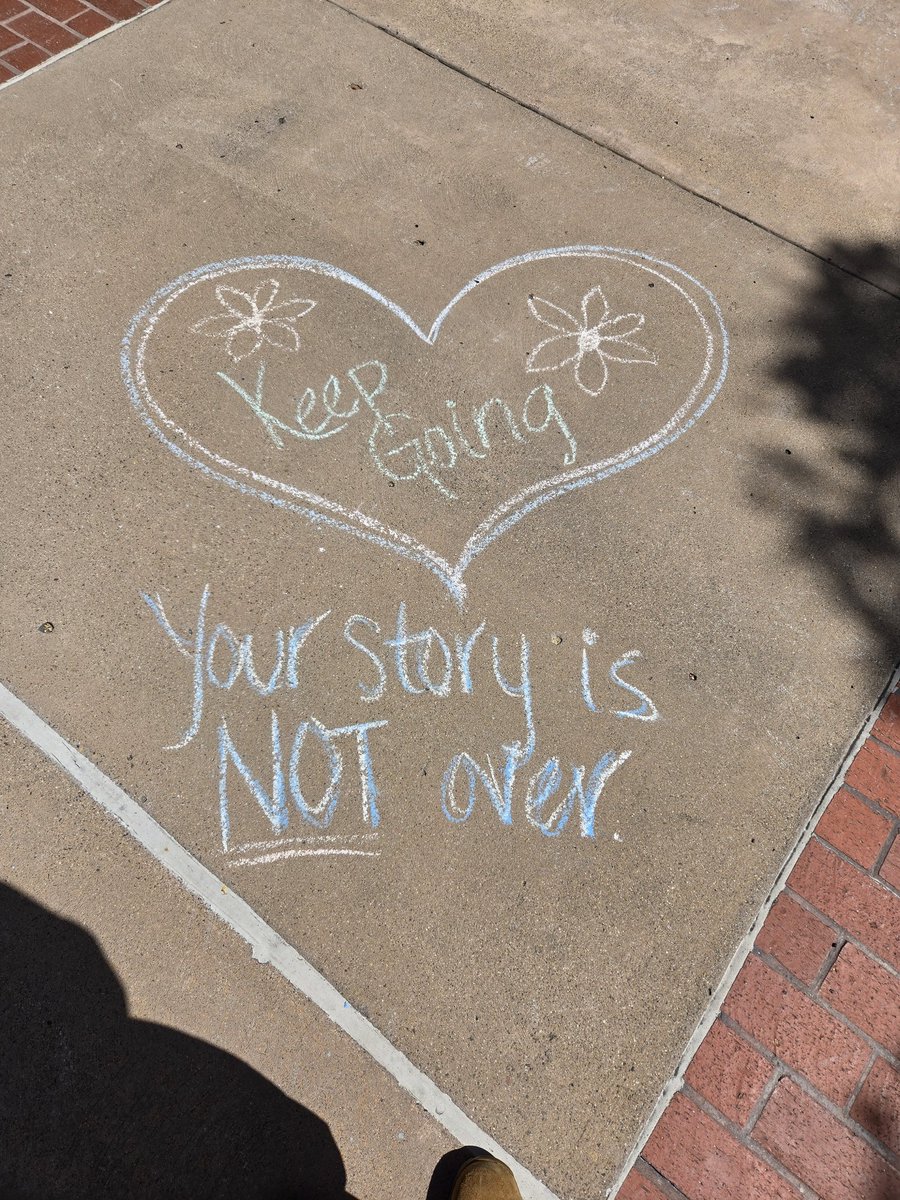 Keep
Going
Your story is
NOT over.